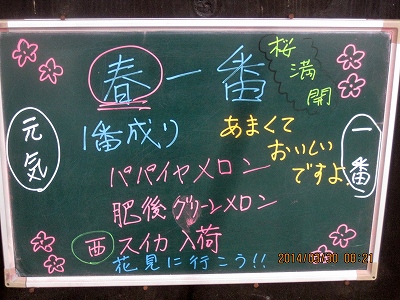 春一番
桜満開
元気
一番
1番成り
あまくて
おいしい
ですよ
パパイヤメロン
肥後グリーンメロン
西スイカ入荷
花見に行こう!!
2014/03/30 08:21